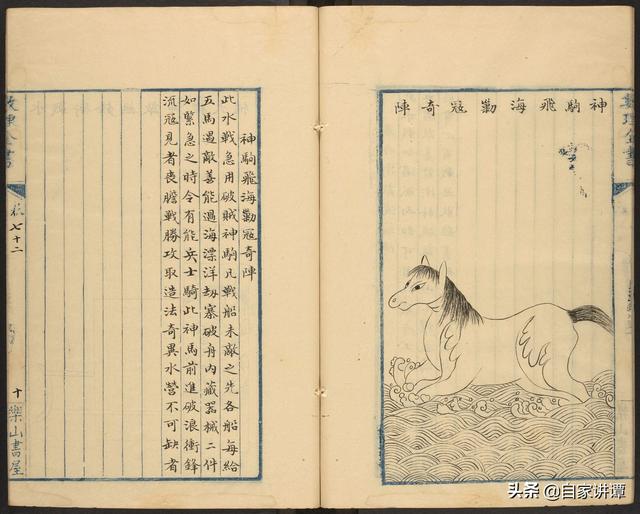 神駒飛海勦寇奇陣
神駒飛海勦寇奇陣
此水戰急用破賊神駒凡戰船未敵之先各船每給
五馬遇敵善能過海漂洋劫寨破舟內藏器械二件
如緊急之時令有能兵士騎此神馬前進破浪衝鋒
流寇見者喪膽戰勝攻取造法奇異水營不可缺者
七十二
十
樂山書屋
头条 @自家讲谭